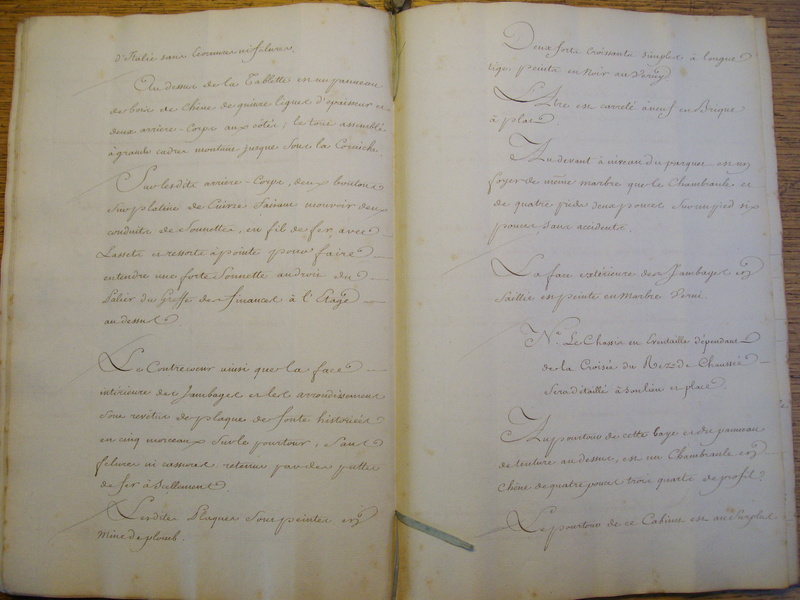 d'Italie sans écornures ni felures.
Au dessus de la Tablette est un panneau
de bois de Chêne de quinze lignes d'épaisseur et
deux arriere-Corps aux côtés; le tout assemblé
à grands cadres montans jusque sous la Corniche.
Sur lesdits arriere-Corps, deux boutons
sur platine de Cuivre faisant mouvoir deux
conduits de Sonnettes, en fil de fer, avec
Lassets et ressorts à pointe pour faire
entendre une forte Sonnette au droit du
Palier du Greffe des finances à l'Etage
au dessus
Le Contrecoeur ainsi que la face
intérieure des Jambages et les arrondissemens
sont revêtus de plaques de fonte historiées
en cinq morceaux sur le pourtour, sans
felures ni cassures retenus par des pattes
de fer à Scellement.
Lesdites Plaques sont peintes en
mine de plomb.
Deux forts Croissants simples à longue
tige peints en Noir au Vernis
L'Atre est carrelé à neuf en Brique
à plat
Au devant à niveau du parquet est un
foyer de même marbre que le Chambranle et
de quatre pieds deux pouces sur un pied six
pouces, sans accidents.
La face extérieure des Jambages en
Saillie est peinte en marbre Verni.
Na. Le Chassis en Eventaille dépendant
de la Croisée du Rez de Chaussée
sera détaillé à son lieu et place.
Au pourtour de cette baye et du panneau
de tenture au dessus, est un Chambranle en
Chêne de quatre pouces trois quarts de profil.
Le pourtour de ce Cabinet est au Surplus